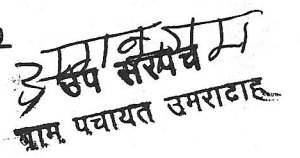 उप सरपंच
ग्राम पंचायत उमराटाह